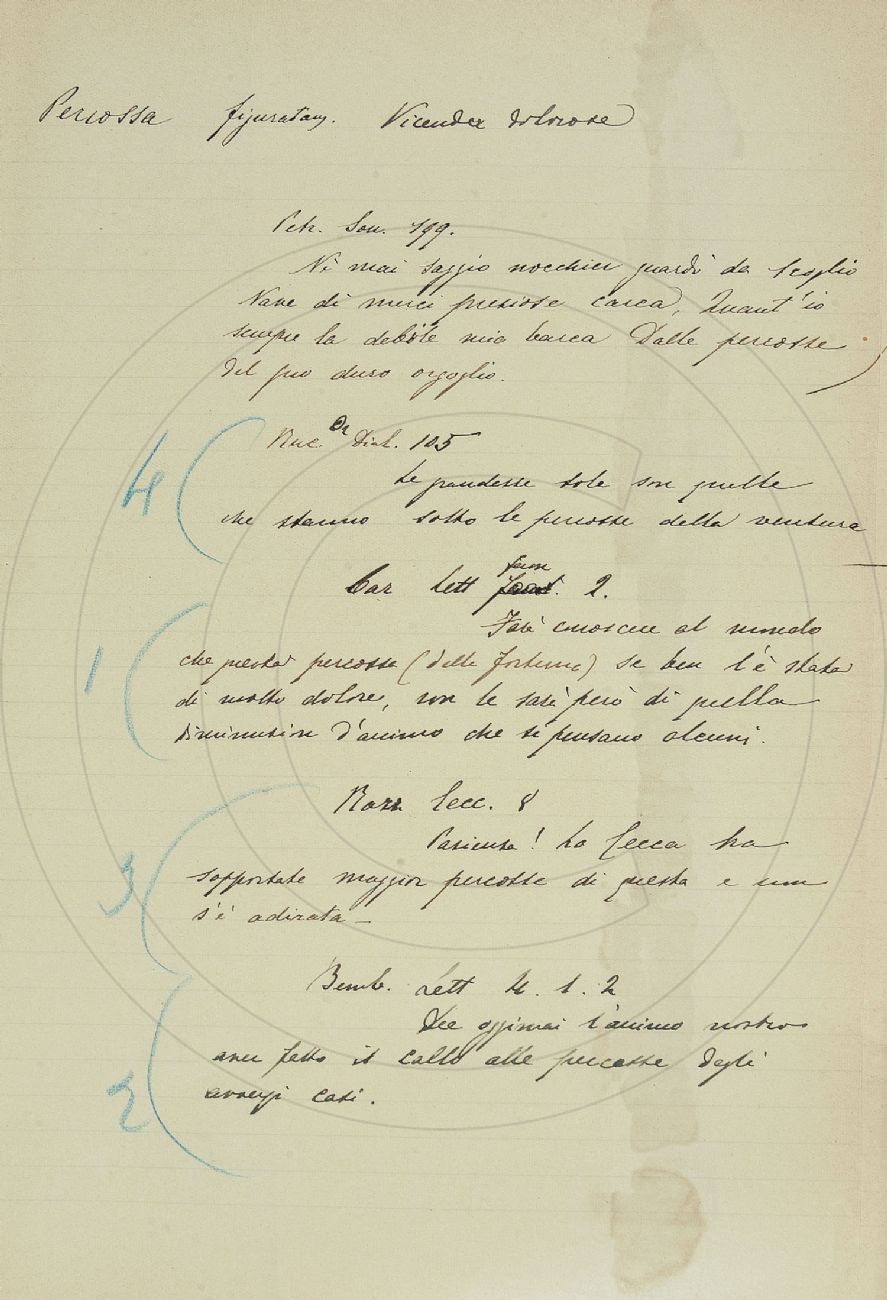 Percossa figuratam. Vicende dolorose
Petr. Son. 199.
Nè mai saggio nocchier guardò da scoglio
Nave di merci preziose carca, Quant'io
sempre la debole mia barca Dalle percosse
del suo duro orgoglio.
4
Ruc. Or Dial. 105
Le grandezze sole son quelle
che stanno sotto le percosse della ventura
Car Lett fam 2.
1
Farò conoscere al mondo
che questa percossa (della fortuna) se ben l'è stata
di molto dolore, non le sarà però di quella
diminuzion d'animo che si pensano alcuni.
Cecc. 8
3
Pacienza! La Cecca ha
sopportate maggior percosse di questa e non
s'è adirata —
Bemb. Lett 4. 1. 2
2
Dee oggimai l'animo nostro
aver fatto il callo alle percosse degli
avversi casi.